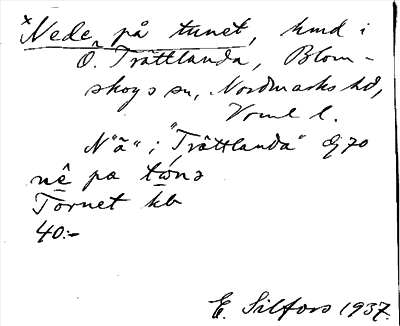 ×Nede på tunet, hmd i
Ö. Trättlanda, Blom-
skogs sn, Nordmarks hd,
Vrml l.
N "ä" i "Trättlanda" dj 70
nê pa tɷnə
Tornet kb
40:-
E. Silfors 1937.